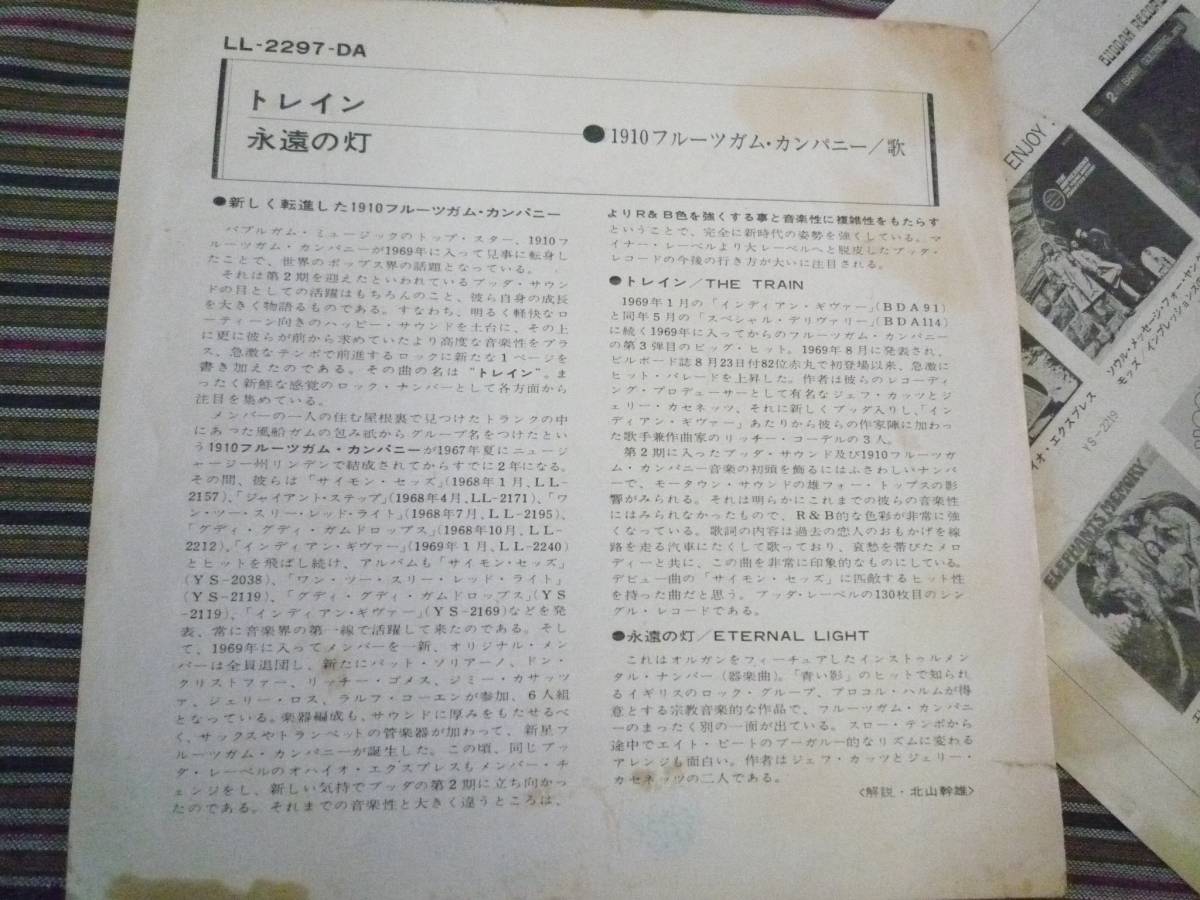 LL-2297-DA
トレイン
永遠の灯
●1910フルーツガム・カンパニー/歌
●新しく転進した1910フルーツガム・カンパニー
バブルガム・ミュージックのトップ・スター、1910フ
ルーツガム・カンパニーが1969年に入って見事に転身し
たことで、世界のポップス界の話題となっている。
それは第2期を迎えたといわれているブッダ・サウン
ドの目としての活躍はもちろんのこと、彼ら自身の成長
を大きく物語るものである。すなわち、明るく軽快なロ
ーティーン向きのハッピー・サウンドを土台に、その上
に更に彼らが前から求めていたより高度な音楽性をプラ
ス、急激なテンポで前進するロックに新たな1ページを
書き加えたのである。その曲の名は“トレイン”。ま
ったく新鮮な感覚のロック・ナンバーとして各方面から
注目を集めている。
メンバーの一人の住む屋根裏で見つけたトランクの中
にあった風船ガムの包み紙からグループ名をつけたとい
う1910フルーツガム・カンパニーが1967年夏にニュージ
ャージー州リンデンで結成されてからすでに2年になる。
その間、彼らは「サイモン・セッズ」(1968年1月、LL-
2157)、「ジャイアント・ステップ」(1968年4月、LL-2171)、「ワ
ン・ツー・スリー・レッド・ライト」(1968年7月、LL-2195)、
「グディ・グディ・ガムドロップス」(1968年10月、LL-
2212)、「インディアン・ギヴァー」(1969年1月、LL-2240)
とヒットを飛ばし続け、アルバムも「サイモン・セッズ」
(YS-2038)、「ワン・ツー・スリー・レッド・ライト」
(YS-2119)、「グディ・グディ・ガムドロップス」(YS
-2119)、「インディアン・ギヴァー」(YS-2169)などを発
表、常に音楽界の第一線で活躍して来たのである。そし
て、1969年に入ってメンバーを一新、オリジナル・メン
バーは全員退団し、新たにパット・ソリアーノ、ドン・
クリストファー、リッチー・ゴメス、ジミー・カサッツ
ァ、ジェリー・ロス、ラルフ・コーエンが参加、6人組
となっている。楽器編成も、サウンドに厚みをもたせるべ
く、サックスやトランペットの管楽器が加わって、新星フ
ルーツガム・カンパニーが誕生した。この頃、同じブッ
ダ・レーベルのオハイオ・エクスプレスもメンバー・チ
ェンジをし、新しい気持でブッダの第2期に立ち向かっ
たのである。それまでの音楽性と大きく違うところは、
よりR&B色を強くする事と音楽性に複雑性をもたらす
ということで、完全に新時代の姿勢を強くしている。マ
イナー・レーベルより大レーベルへと脱皮したブッダ・
レコードの今後の行き方が大いに注目される。
●トレイン/THE TRAIN
1969年1月の「インディアン・ギヴァー」(BDA91)
と同年5月の「スペシャル・デリヴァリー」(BDA114)
に続く1969年に入ってからのフルーツガム・カンパニー
の第3弾目のビッグ・ヒット。1969年8月に発表され、
ビルボード誌8月23日付82位赤丸で初登場以来、急激に
ヒット・パレードを上昇した。作者は彼らのレコーディ
ング・プロデューサーとして有名なジェフ・カッツとジ
ェリー・カセネッツ、それに新しくブッダ入りし、「イン
ディアン・ギヴァー」あたりから彼らの作家陣に加わっ
た歌手兼作曲家のリッチー・コーデルの3人。
第2期に入ったブッダ・サウンド及び1910フルーツガ
ム・カンパニー音楽の初頭を飾るにはふさわしいナンバ
ーで、モータウン・サウンドの雄フォー・トップスの影
響がみられる。それは明らかにこれまでの彼らの音楽性
にはみられなかったもので、R&B的な色彩が非常に強
くなっている。歌詞の内容は過去の恋人のおもかげを線
路を走る汽車にたくして歌っており、哀愁を帯びたメロ
ディーと共に、この曲を非常に印象的なものにしている。
デビュー曲の「サイモン・セッズ」に匹敵するヒット性
を持った曲だと思う。ブッダ・レーベルの130枚目のシン
グル・レコードである。
●永遠の灯/ETERNAL LIGHT
これはオルガンをフィーチュアしたインストゥルメン
タル・ナンバー(器楽曲)。「青い影」のヒットで知られ
るイギリスのロック・グループ、プロコル・ハルムが得
意とする宗教音楽的な作品で、フルーツガム・カンパニ
ーのまったく別の一面が出ている。スロー・テンポから
途中でエイト・ビートのブーガルー的なリズムに変わる
アレンジも面白い。作者はジェフ・カッツとジェリー・
カセネッツの二人である。
〈解説・北山幹雄〉
BUDDAH RECORD
ENJOY!
ソウル・メッセージ・フォー・ヤング
モッズ/インプレッションズの
イオ・エクスプレス
YS-2219
ELEPHANTS MEMORY